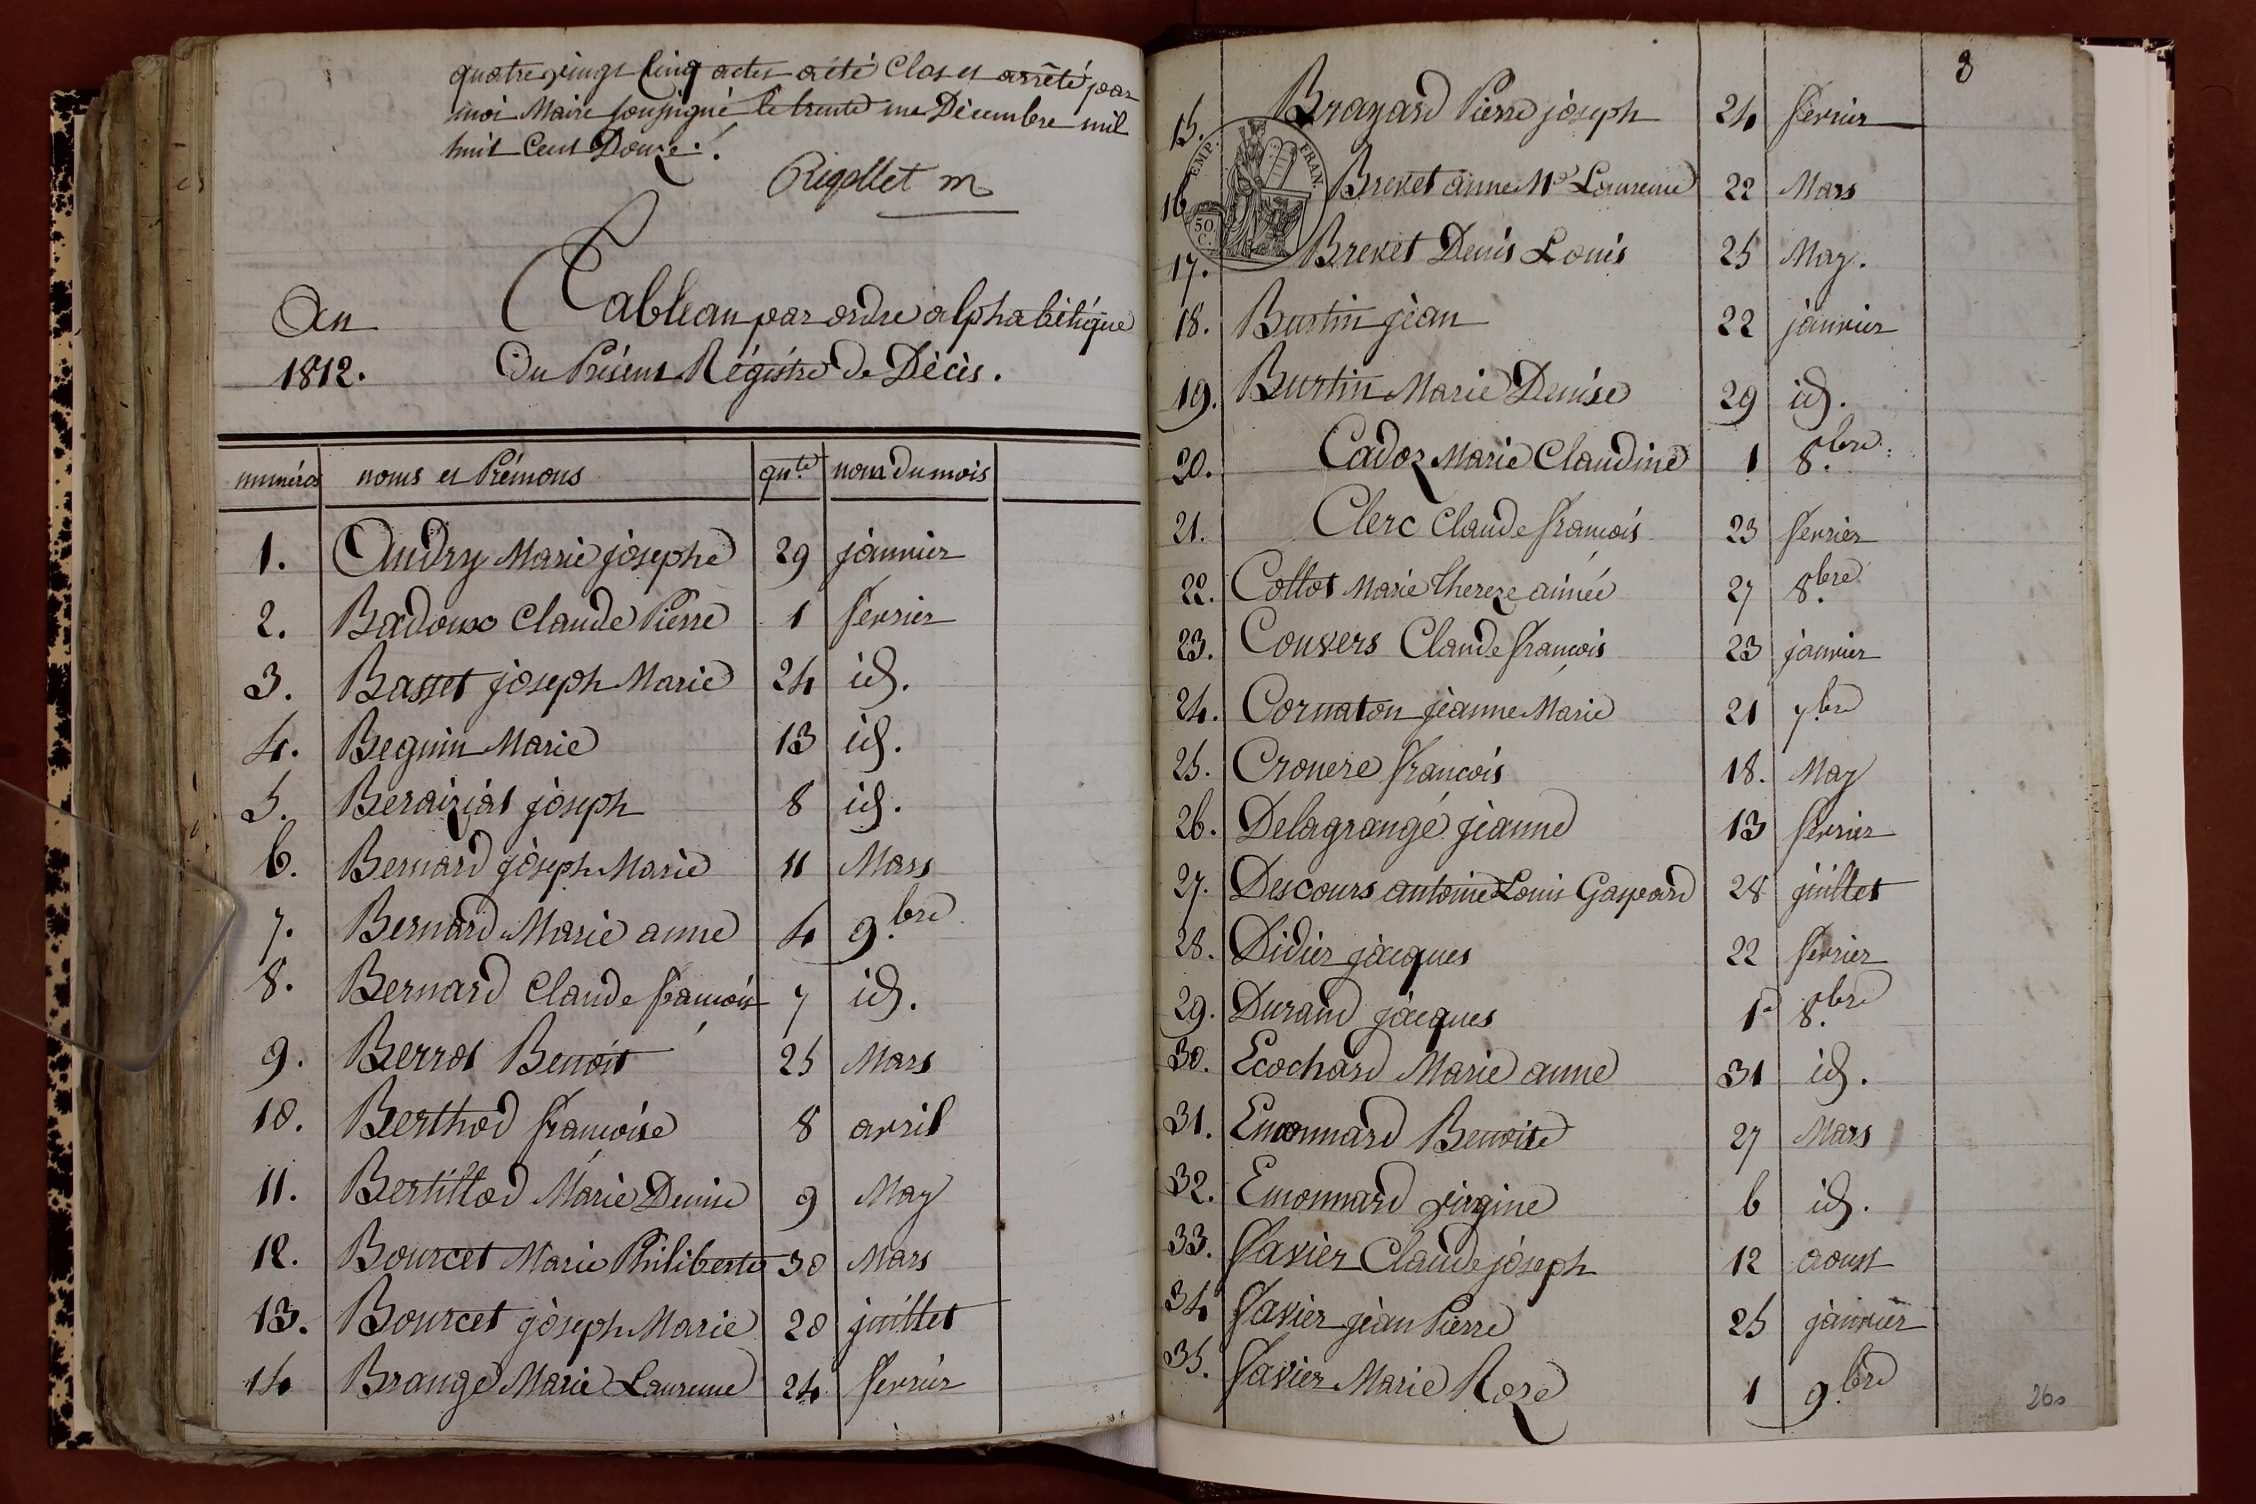 quatre vingt Cinq actes a été Clos et arrêté par
moi Maire soussigné le trente un Décembre mil
huit Cent Douze ./.
Rigollet m
An
1812.
Tableau par ordre alphabétique
Du Présent Régistre de Décès.
numéros noms et Prénoms qnte nom du mois
1. Andry Marie josephe 29 janvier
2. Badoux Claude Pierre 1 fevrier
3. Basset joseph Marie 24 id.
4. Beguin Marie 13 id.
5. Beraiziat joseph 8 id.
6. Bernard joseph Marie 11 Mars
7. Bernard Marie anne 4 9.bre
8. Bernard Claude francois 7 id.
9. Berrot Benoit 25 Mars
10. Berthod francoise 8 avril
11. Bertillod Marie Denise 9 May
12. Bourcet Marie Philiberte 30 Mars
13. Bourcet joseph Marie 20 juillet
14 Brange Marie Laurence 24 fevrier
8
15. Brayard Pierre joseph 24 fevrier
16 Brevet anne Me Laurence 22 Mars
EMP. FRAN.
50 C.
17. Brevet Denis Louis 25 May.
18. Burtin jean 22 janvier
19. Burtin Marie Denise 29 id.
20. Cadoz Marie Claudine 1 8.bre
21. Clerc Claude francois 23 fevrier
22. Collot Marie thereze aimée 27 8.bre
23. Convers Claude francois 23 janvier
24. Cornaton jeanne Marie 21 7bre
25. Cronere francois 18. May
26. Delagrange jeanne 13 fevrier
27. Descours antoine Louis Gaspard 28 juillet
28. Didier jacques 22 fevrier
29. Durand jacques 1er 8.bre
30. Ecochard Marie anne 31 id.
31. Emonnard Benoite 27 Mars
32. Emonnard virgine 6 id.
33. favier Claude joseph 12 aoust
34 favier jean Pierre 25 janvier
35. favier Marie Roze 1 9.bre
260